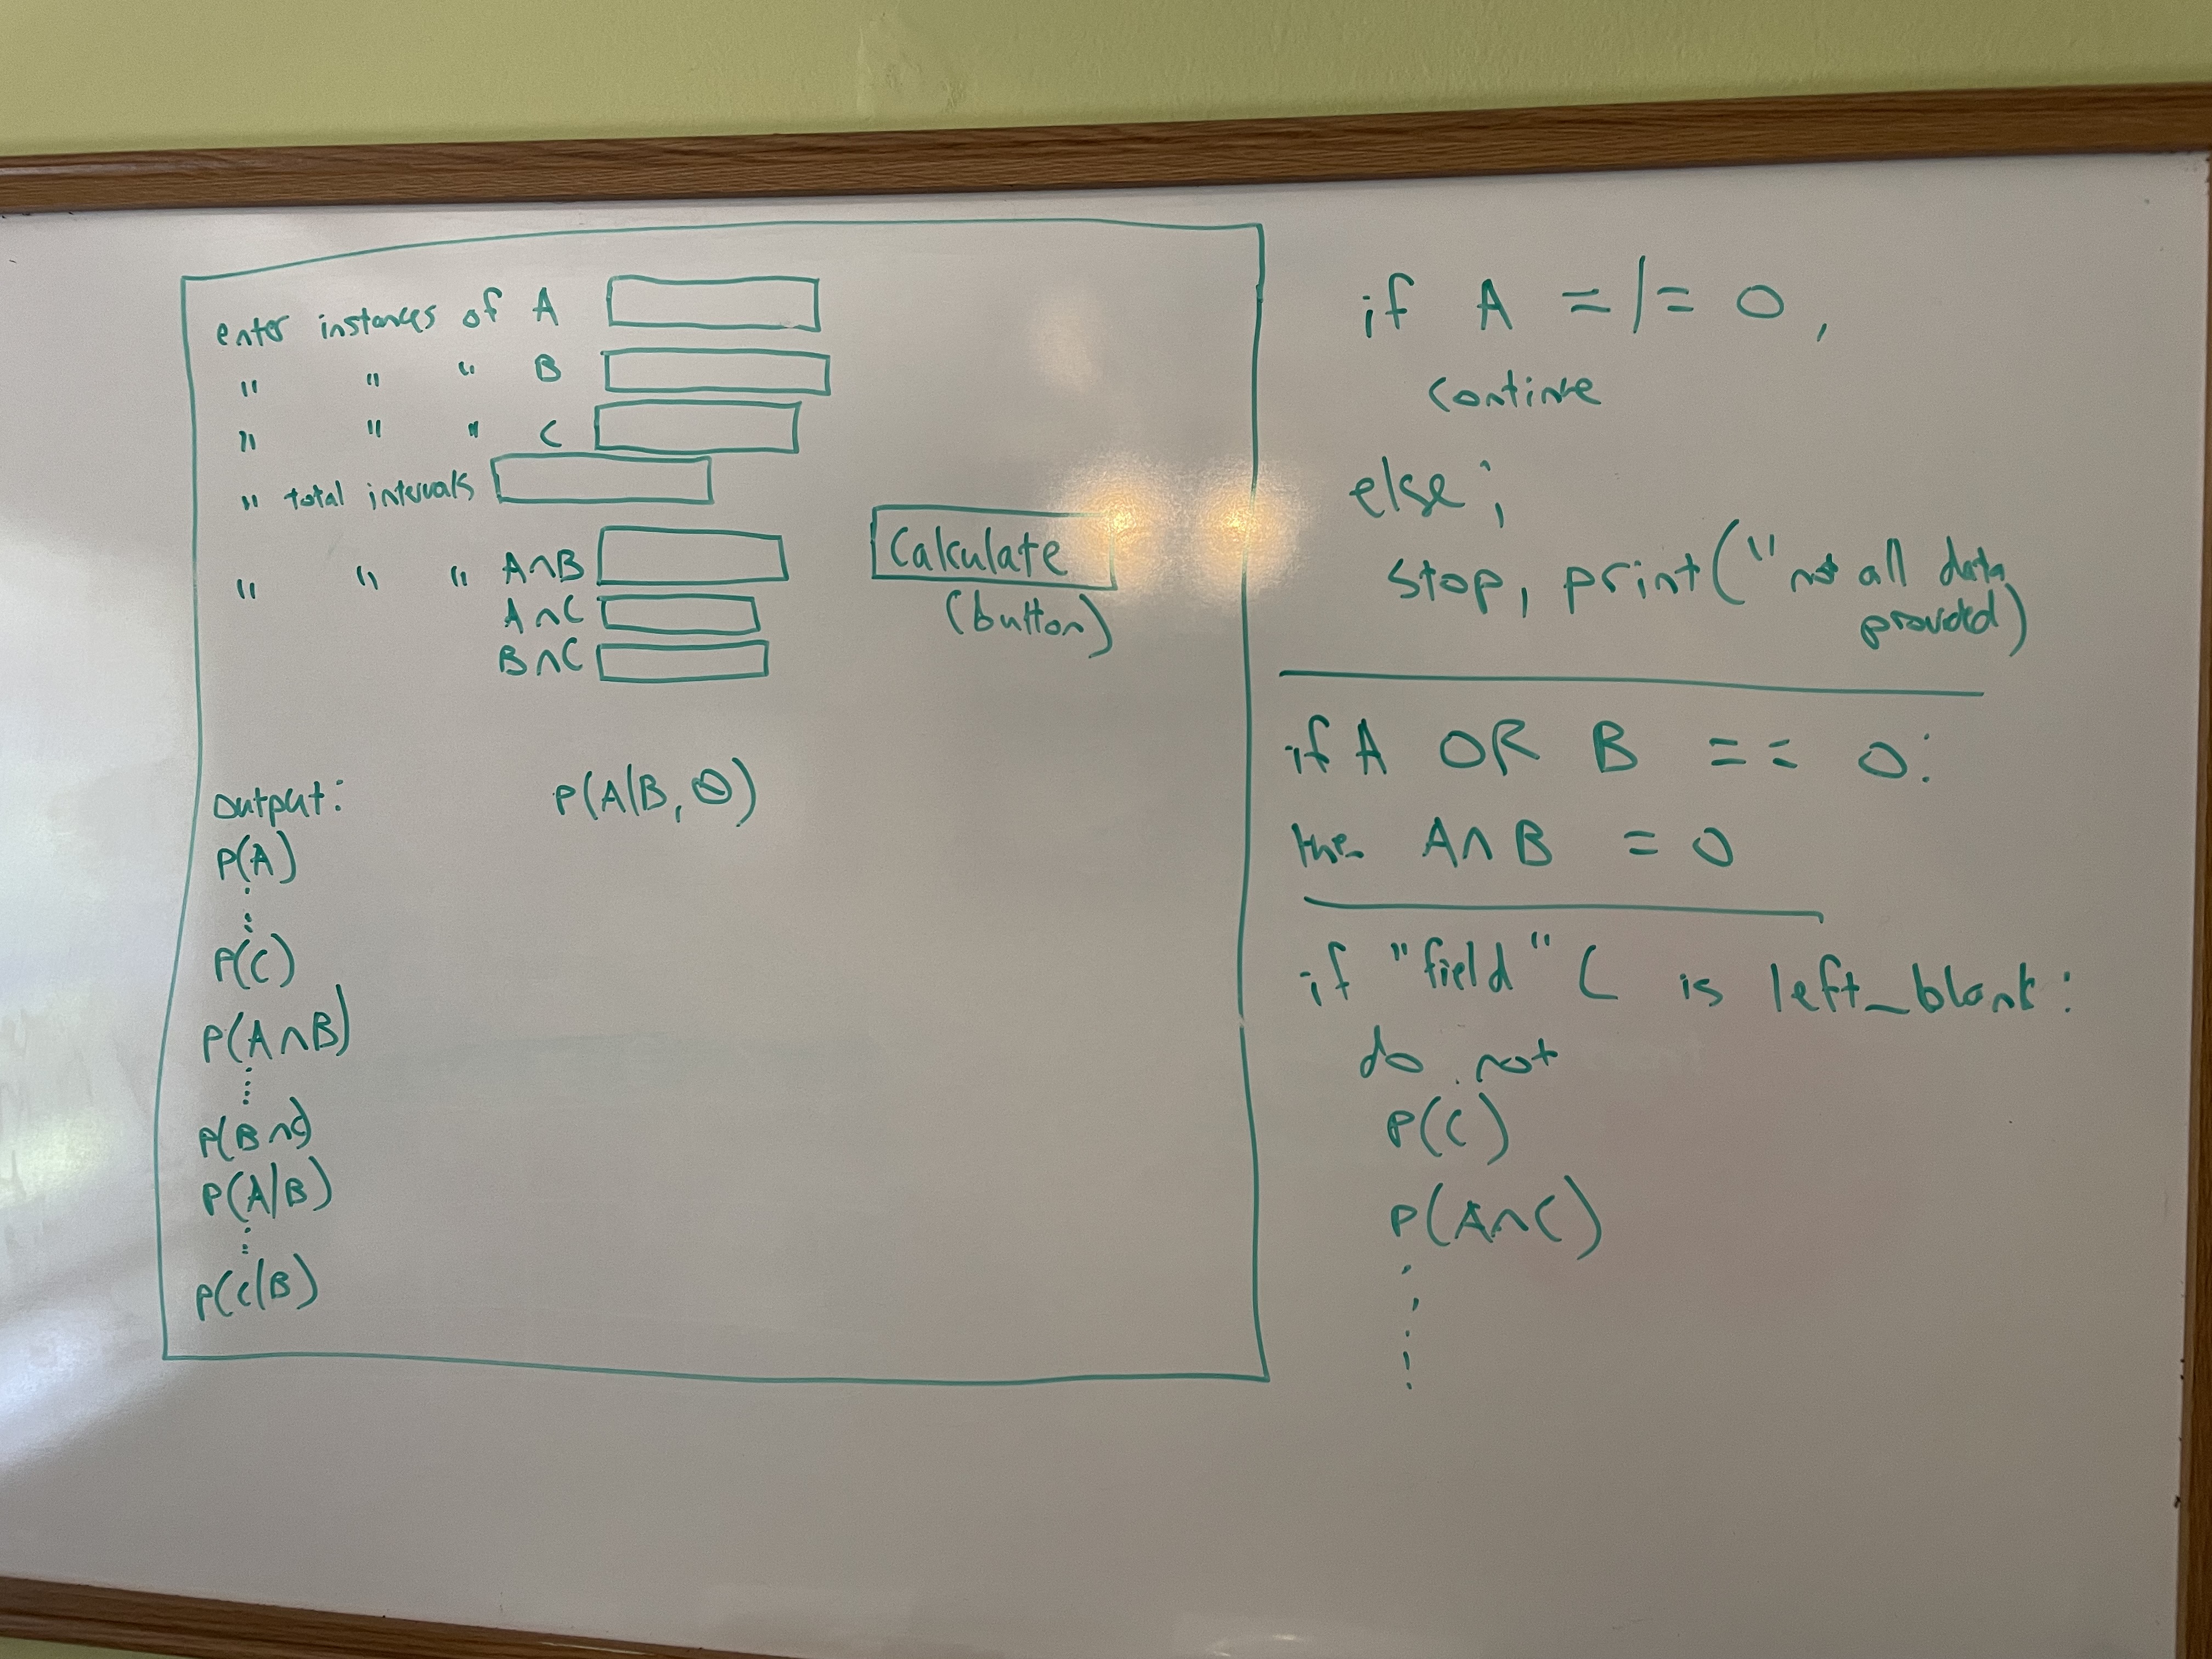 enter instances of A
" " " B
" " " C
" total intervals
" " " A∩B
A∩C
B∩C
Calculate
(button)
output:
P(A|B, Θ)
P(A)
P(C)
P(A∩B)
P(B∩C)
P(A|B)
P(C|B)
if A =/= 0,
continue
else;
stop, print("not all data
provided)
if A OR B == 0:
then A∩B = 0
if "field" C is left_blank:
do not
P(C)
P(A∩C)